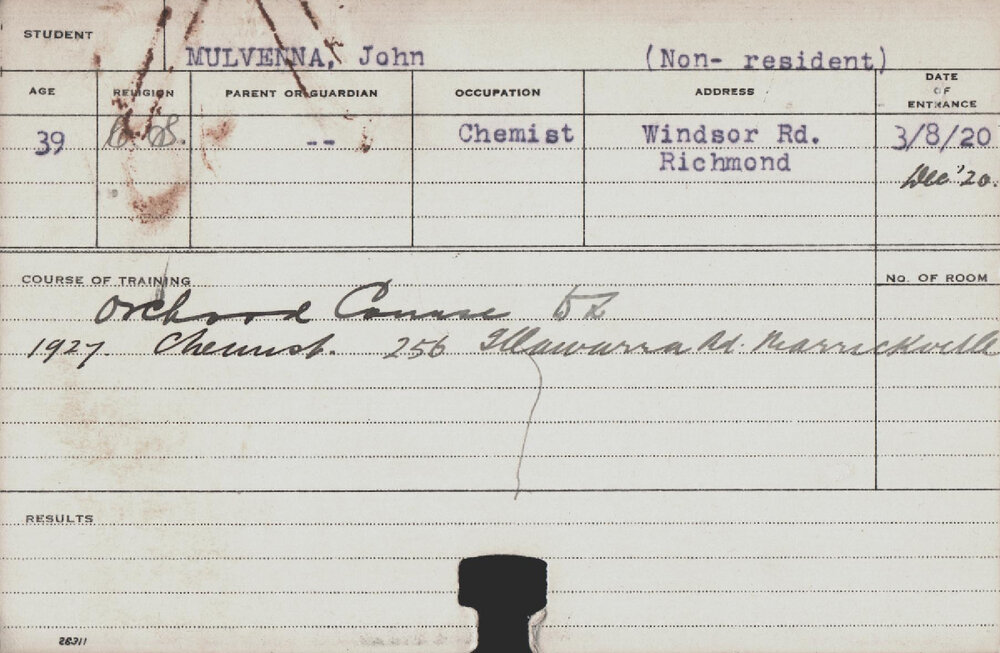 STUDENT MULVENNA, John (Non- resident)
AGE RELIGION PARENT OR GUARDIAN OCCUPATION ADDRESS DATE OF ENTRANCE
39 -- Chemist Windsor Rd. 3/8/20
Richmond Dec '20.
COURSE OF TRAINING No. OF ROOM
Orchard Course
1927. Chemist. 256 Illawarra Rd. Marrickville
RESULTS
26311